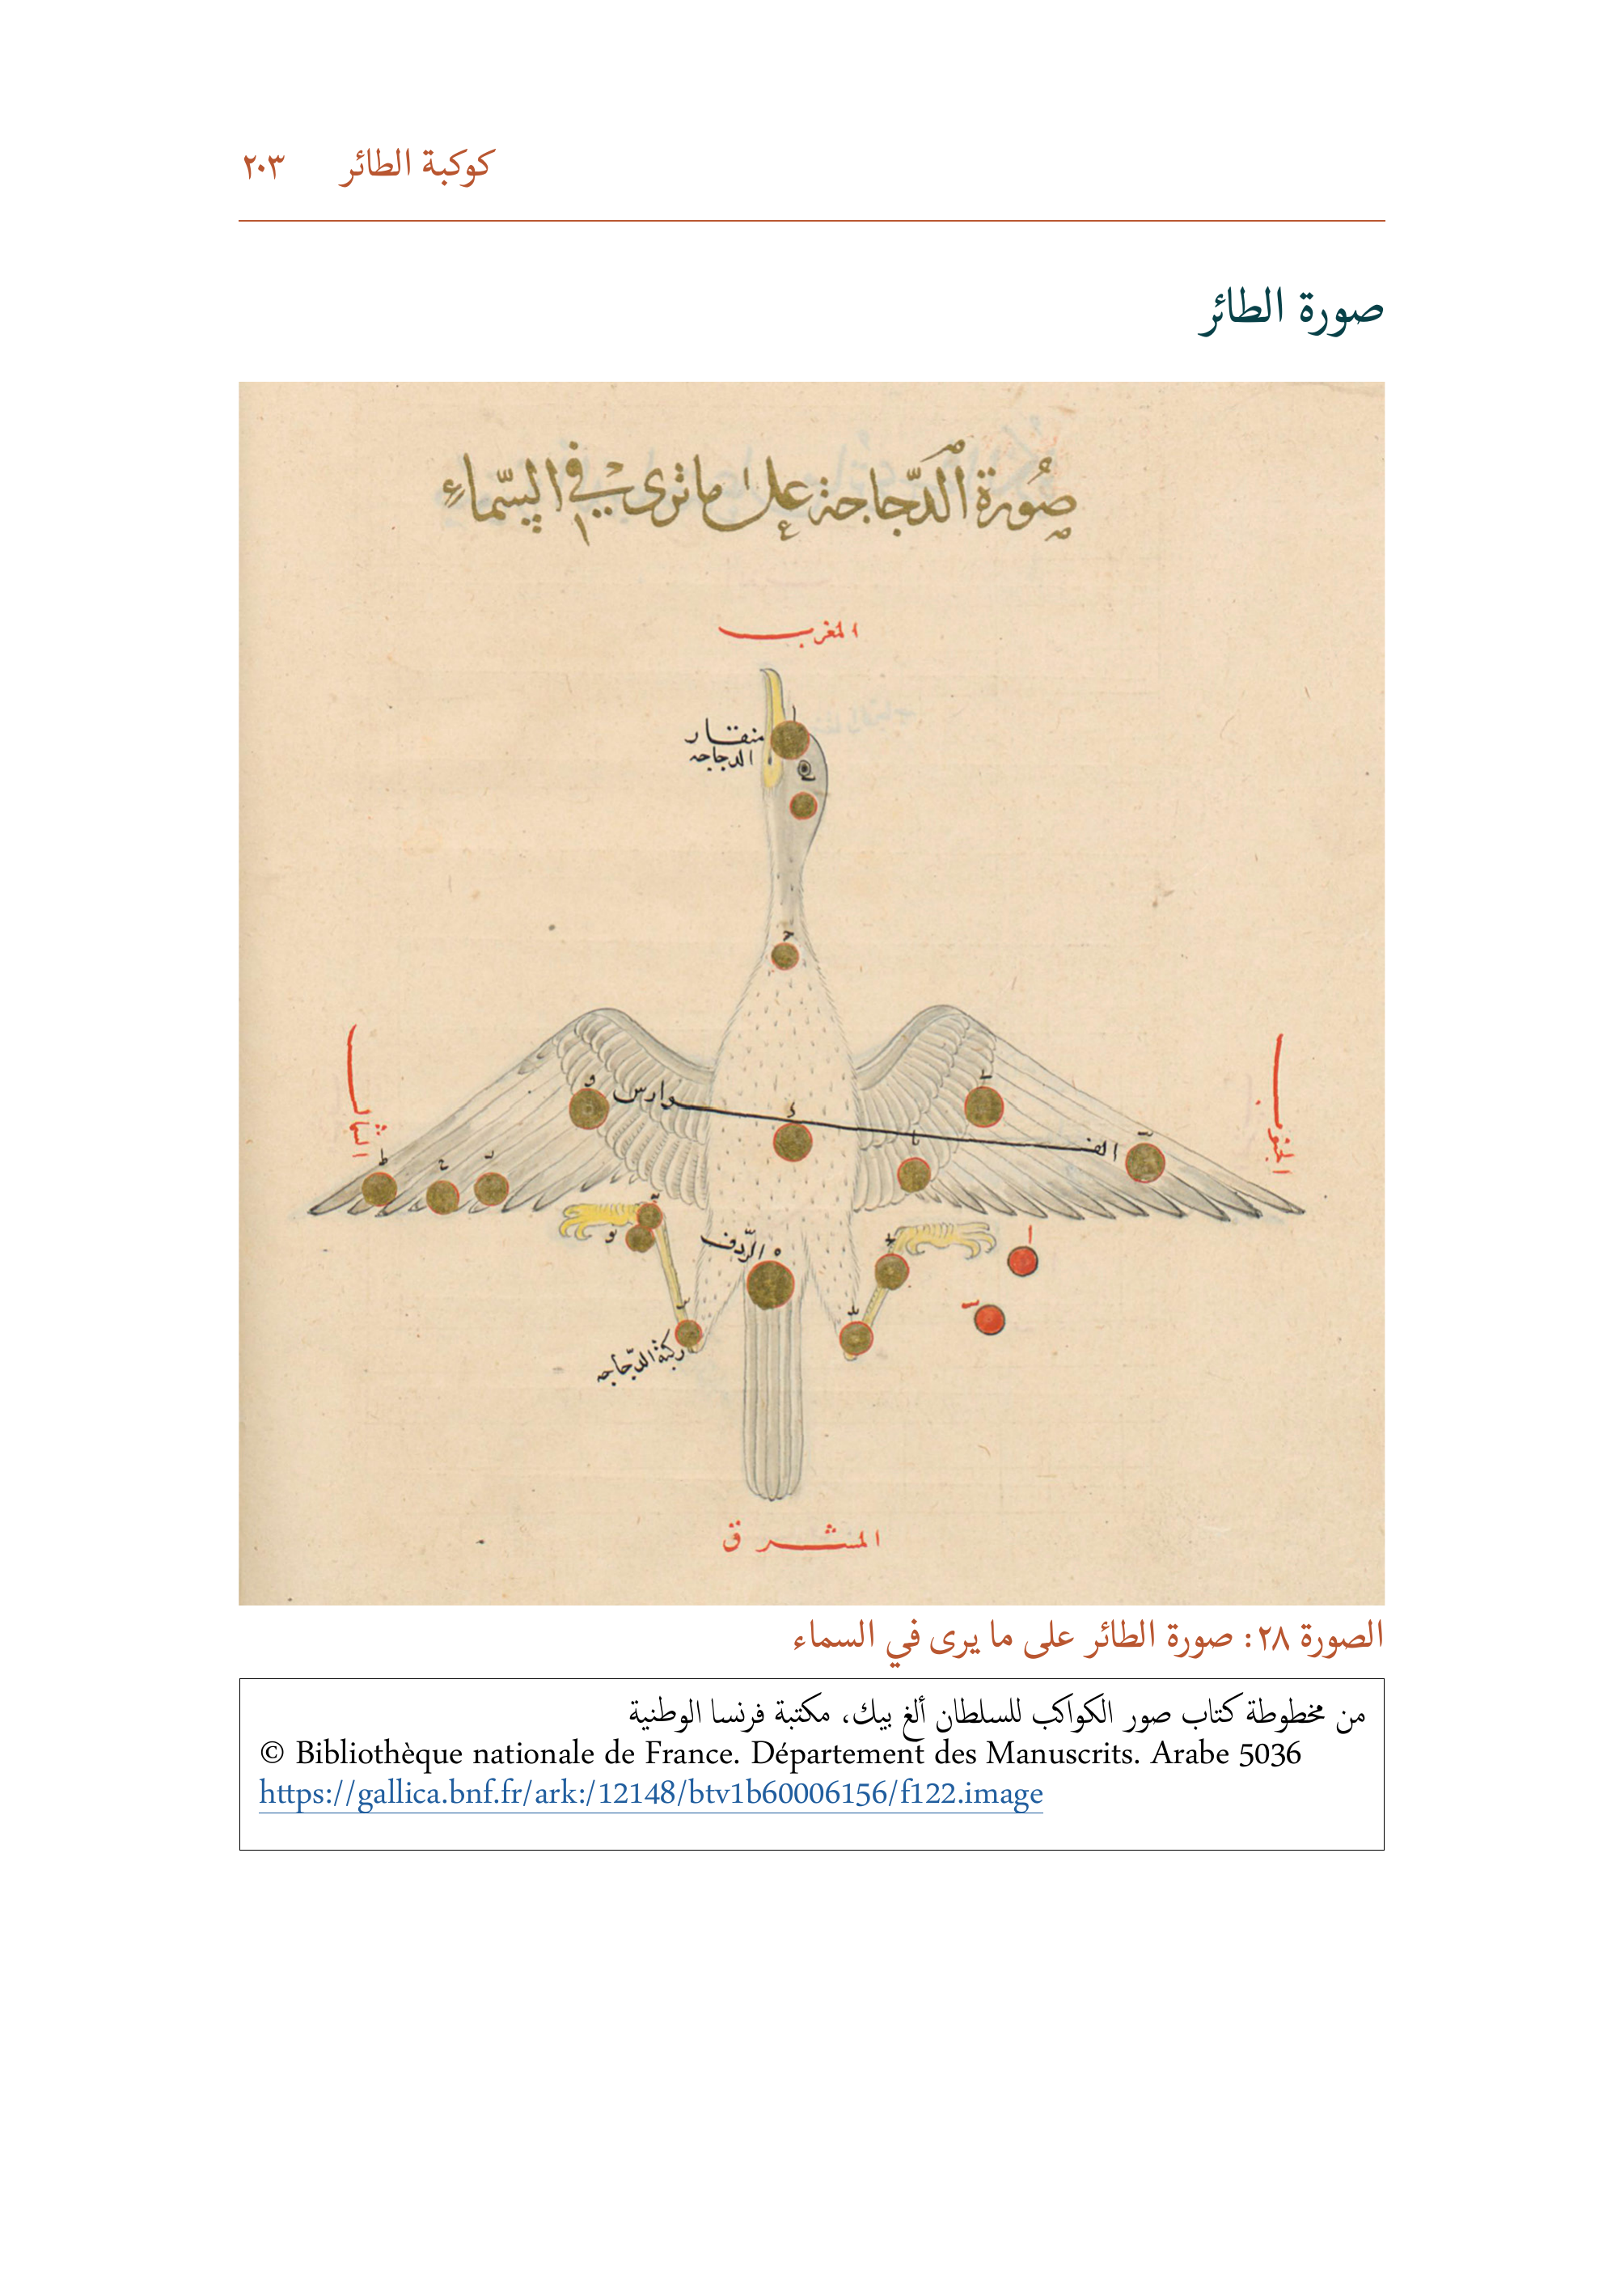 كوكبة الطائر ٢٠٣
صورة الطائر
صُورَة الدّجاجة على ما ترى في السّماء
المغرب
منقار
الدجاجه
ا
ح
الشمال
الجنوب
و
الفوارس
ى
ط
ح
ر
الرّدف
ه
ركبة الدّجاجه
المشرق
الصورة ٢٨: صورة الطائر على ما يرى في السماء
من مخطوطة كتاب صور الكواكب للسلطان ألغ بيك، مكتبة فرنسا الوطنية
© Bibliothèque nationale de France. Département des Manuscrits. Arabe 5036
https://gallica.bnf.fr/ark:/12148/btv1b60006156/f122.image